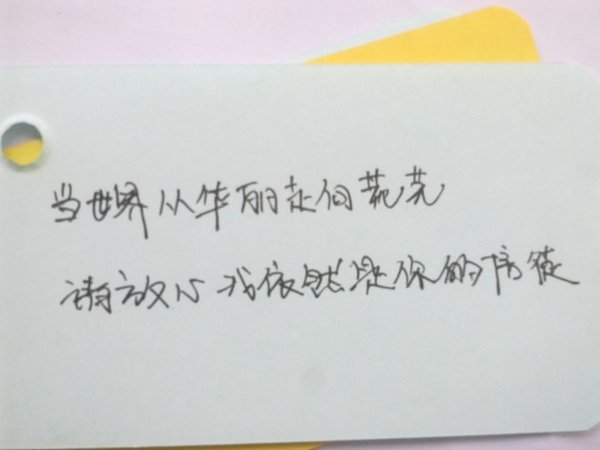 当世界从华丽走向荒芜
请放心我依然是你的信徒